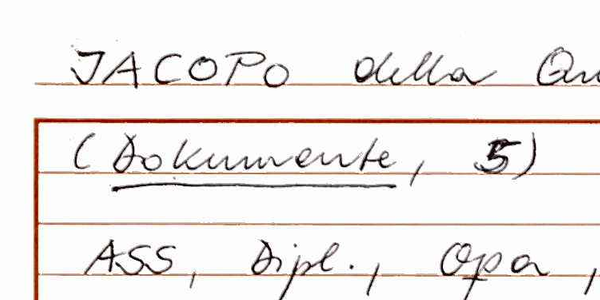 JACOPO della Qu
(Dokumente, 5)
ASS, Dipl., Opa,